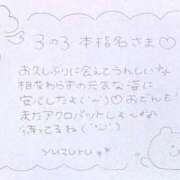 3の3 本指名さま♡
お久しぶりに会えてうれしいな
相変わらずの元気な姿に
安心したよ(´ｰ`)♡ おとんも
またアクロバットしようね
待ってるね(˙ᵕ˙)
yuzuru